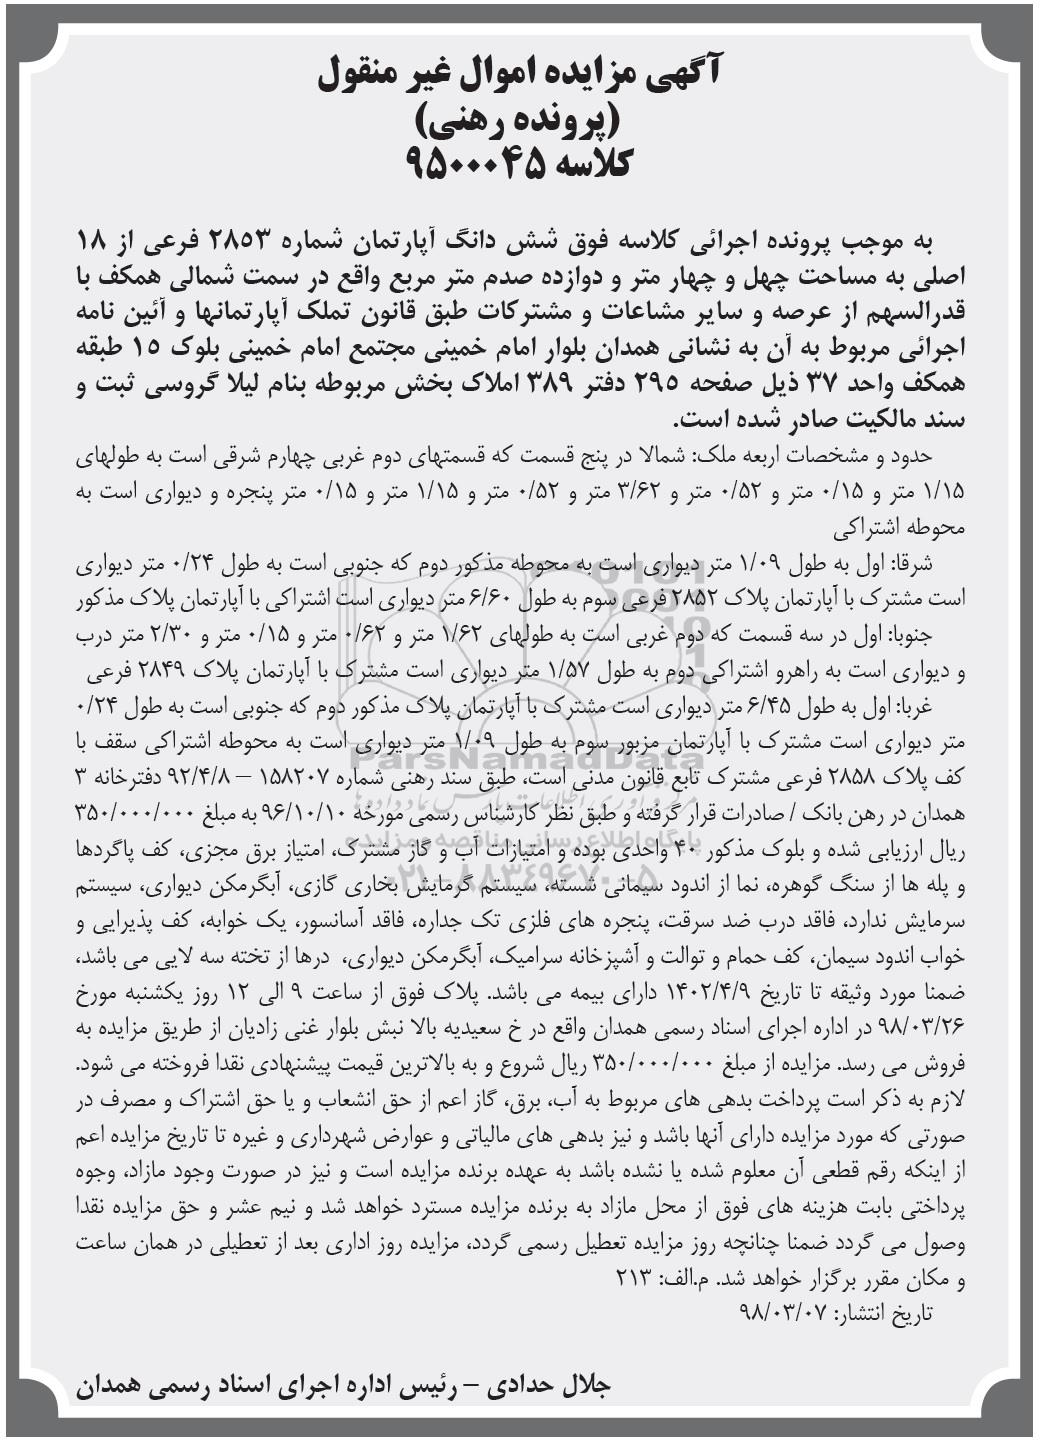 آگهی مزایده اموال غیر منقول
(پرونده رهنی)
کلاسه ۹۵۰۰۰۴۵
به موجب پرونده اجرائی کلاسه فوق شش دانگ آپارتمان شماره ۲۸۵۳ فرعی از ۱۸
اصلی به مساحت چهل و چهار متر و دوازده صدم متر مربع واقع در سمت شمالی همکف با
قدرالسهم از عرصه و سایر مشاعات و مشترکات طبق قانون تملک آپارتمانها و آئین نامه
اجرائی مربوط به آن به نشانی همدان بلوار امام خمینی مجتمع امام خمینی بلوک ۱۵ طبقه
همکف واحد ۳۷ ذیل صفحه ۲۹۵ دفتر ۳۸۹ املاک بخش مربوطه بنام لیلا گروسی ثبت و
سند مالکیت صادر شده است.
حدود و مشخصات اربعه ملک: شمالا در پنج قسمت که قسمتهای دوم غربی چهارم شرقی است به طولهای
۱/۱۵ متر و ۰/۱۵ متر و ۰/۵۲ متر و ۳/۶۲ متر و ۰/۵۲ متر و ۱/۱۵ متر و ۰/۱۵ متر پنجره و دیواری است به
محوطه اشتراکی
شرقا: اول به طول ۱/۰۹ متر دیواری است به محوطه مذکور دوم که جنوبی است به طول ۰/۲۴ متر دیواری
است مشترک با آپارتمان پلاک ۲۸۵۲ فرعی سوم به طول ۶/۶۰ متر دیواری است اشتراکی با آپارتمان پلاک مذکور
جنوبا: اول در سه قسمت که دوم غربی است به طولهای ۱/۶۲ متر و ۰/۶۲ متر و ۰/۱۵ متر و ۲/۳۰ متر درب
و دیواری است به راهرو اشتراکی دوم به طول ۱/۵۷ متر دیواری است مشترک با آپارتمان پلاک ۲۸۴۹ فرعی
غربا: اول به طول ۶/۴۵ متر دیواری است مشترک با آپارتمان پلاک مذکور دوم که جنوبی است به طول ۰/۲۴
متر دیواری است مشترک با آپارتمان مزبور سوم به طول ۱/۰۹ متر دیواری است به محوطه اشتراکی سقف با
کف پلاک ۲۸۵۸ فرعی مشترک تابع قانون مدنی است، طبق سند رهنی شماره ۱۵۸۲۰۷ – ۹۲/۴/۸ دفترخانه ۳
همدان در رهن بانک / صادرات قرار گرفته و طبق نظر کارشناس رسمی مورخه ۹۶/۱۰/۱۰ به مبلغ ۳۵۰/۰۰۰/۰۰۰
ریال ارزیابی شده و بلوک مذکور ۴۰ واحدی بوده و امتیازات آب و گاز مشترک، امتیاز برق مجزی، کف پاگردها
و پله ها از سنگ گوهره، نما از اندود سیمانی شسته، سیستم گرمایش بخاری گازی، آبگرمکن دیواری، سیستم
سرمایش ندارد، فاقد درب ضد سرقت، پنجره های فلزی تک جداره، فاقد آسانسور، یک خوابه، کف پذیرایی و
خواب اندود سیمان، کف حمام و توالت و آشپزخانه سرامیک، آبگرمکن دیواری، درها از تخته سه لایی می باشد،
ضمنا مورد وثیقه تا تاریخ ۱۴۰۲/۴/۹ دارای بیمه می باشد. پلاک فوق از ساعت ۹ الی ۱۲ روز یکشنبه مورخ
۹۸/۰۳/۲۶ در اداره اجرای اسناد رسمی همدان واقع در خ سعیدیه بالا نبش بلوار غنی زادیان از طریق مزایده به
فروش می رسد. مزایده از مبلغ ۳۵۰/۰۰۰/۰۰۰ ریال شروع و به بالاترین قیمت پیشنهادی نقدا فروخته می شود.
لازم به ذکر است پرداخت بدهی های مربوط به آب، برق، گاز اعم از حق انشعاب و یا حق اشتراک و مصرف در
صورتی که مورد مزایده دارای آنها باشد و نیز بدهی های مالیاتی و عوارض شهرداری و غیره تا تاریخ مزایده اعم
از اینکه رقم قطعی آن معلوم شده یا نشده باشد به عهده برنده مزایده است و نیز در صورت وجود مازاد، وجوه
پرداختی بابت هزینه های فوق از محل مازاد به برنده مزایده مسترد خواهد شد و نیم عشر و حق مزایده نقدا
وصول می گردد ضمنا چنانچه روز مزایده تعطیل رسمی گردد، مزایده روز اداری بعد از تعطیلی در همان ساعت
و مکان مقرر برگزار خواهد شد. م.الف: ۲۱۳
تاریخ انتشار: ۹۸/۰۳/۰۷
جلال حدادی – رئیس اداره اجرای اسناد رسمی همدان
ParsNamadData
پایگاه اطلاع رسانی مناقصه و مزایده
۰۲۱-۸۸۳۴۹۶۷۰-۵